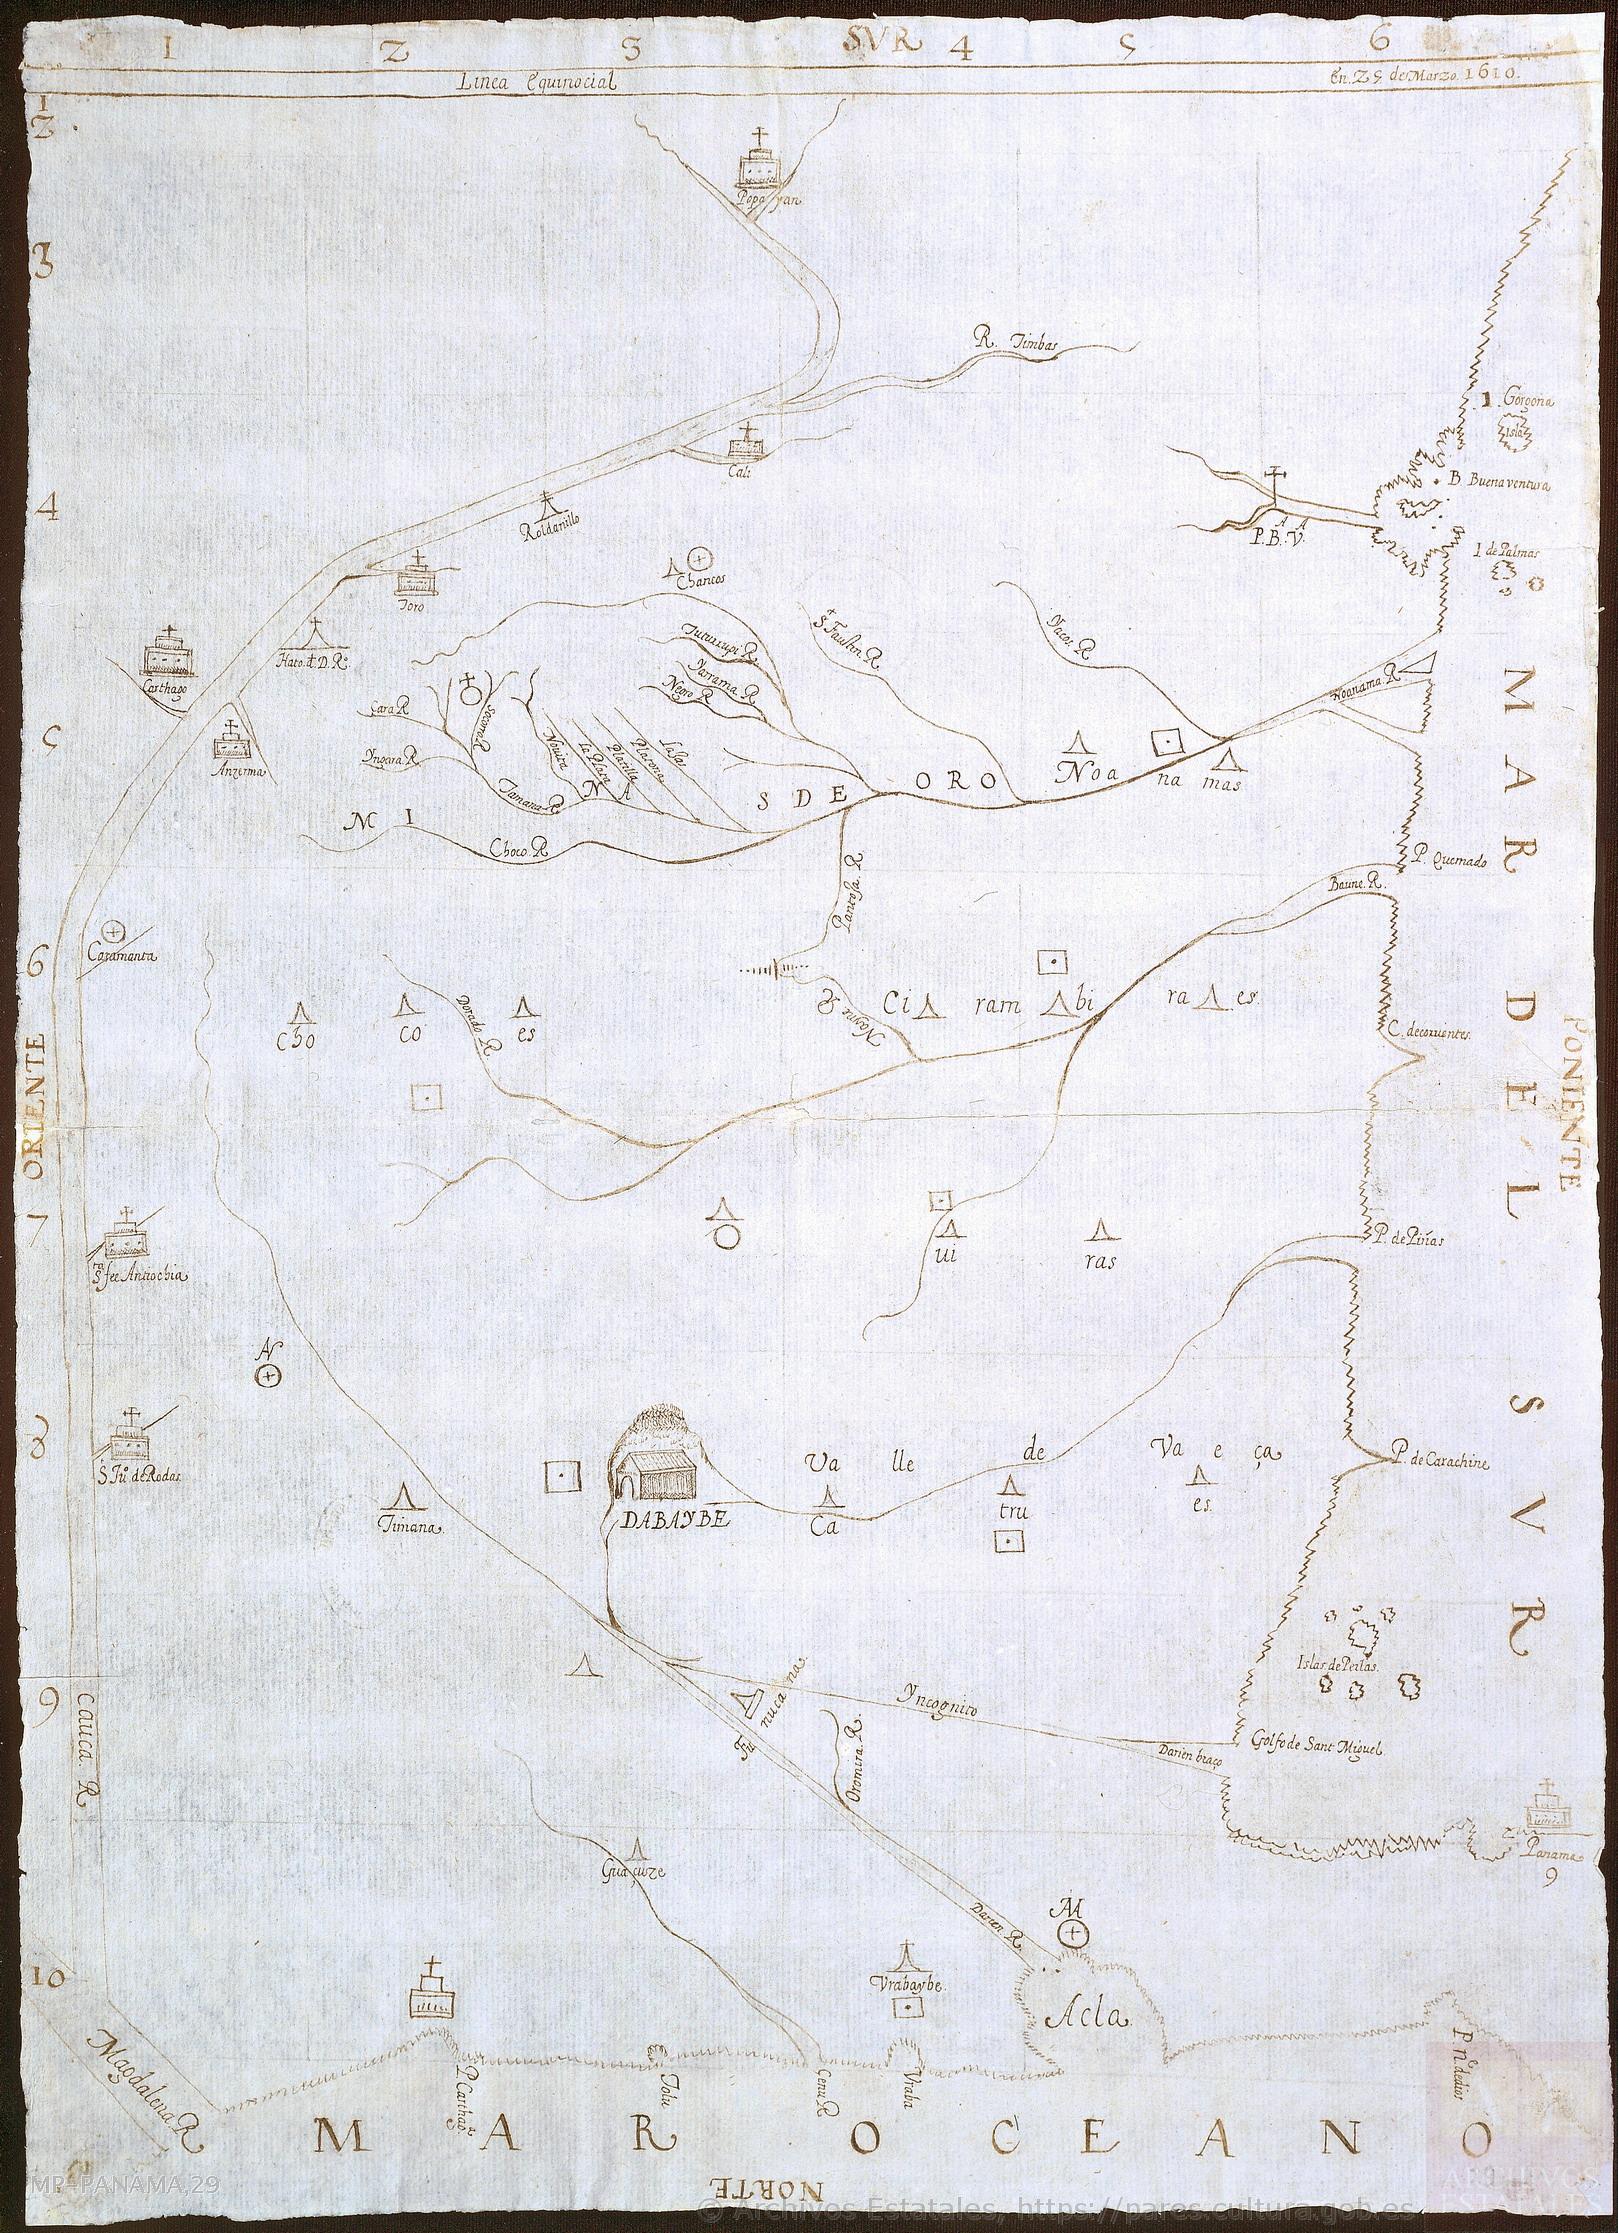 1 2 3 SVR 4 5 6
Linea Equinocial
En. 25 de Marzo. 1610.
1
2
Popayan
3
R. Timbas
I. Gorgona
Isla
Cali
B. Buenaventura
4
Roldanillo
P. B. V.
I. de Palmas
Chancos
Toro
Yacos. R
Carthago
Tuturrupi R
Yarrama R
Negro R
Noanama. R
Cara R
5
Anzerma
Yngara. R
Tamana R
Novita
la Plata
Platilla
Platona
Lalas
MINAS DE ORO
Noa na mas
Choco. R
P. Quemado
Pantosa. R
Baune. R.
6
Caramanta
Cho co es
Dorado R.
Ci ram bi ra es
C. de corrientes.
ORIENTE
PONIENTE
MAR DEL SVR
7
O
ui
ras
P. de Piñas
Sta fee Antiochia
N
8
S. Ju. de Rodas
Timana
DABAYBE
Valle de Vaeça
Ca tru es
P. de Carachine
Islas de Perlas.
9
Cauca. R
Yncognito
Oromira. R.
Darien braço
Golfo de Sant Miguel
Panama
9
Guaçuze
Darien. R
M
10
Vrabaybe.
Acla.
Magdalena. R
P. Carthaga
Tolu
Cenu R
Vraba
P. nre de dios
MAR OCEANO
NORTE
MP-PANAMA,29
© Archivos Estatales, https://pares.cultura.gob.es
ARCHIVOS
ESTATALES